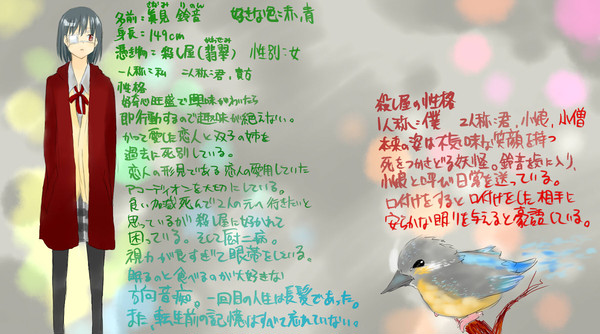 名前:見 鈴音 好きな色:赤,青
身長:149cm
憑き物:殺し屋(翡翠) 性別:女
かわせみ
一人称:私 二人称:君,貴方
性格
好奇心旺盛で興味がわいたら
即行動するので趣味が絶えない。
かつて愛した恋人と双子の姉を
過去に死別している。
恋人の形見である恋人の愛用していた
アコーディオンを大切にしている。
良い加減死んで2人の元へ行きたいと
思っているが殺し屋に好かれて
困っている。そして厨二病。
視力が良すぎて眼帯をしている。
眠るのと食べるのが大好きな
方向音痴。一回目の人生は長髪であった。
また、転生前の記憶はすべて忘れていない。
殺し屋の性格
1人称:僕 2人称:君,小娘,小僧
本来の姿は不気味な笑顔を持つ
死をつかさどる妖怪。鈴音を気に入り、
小娘と呼び日常を送っている。
口付けをすると口付けをした相手に
安らかな眠りを与えると豪語している。